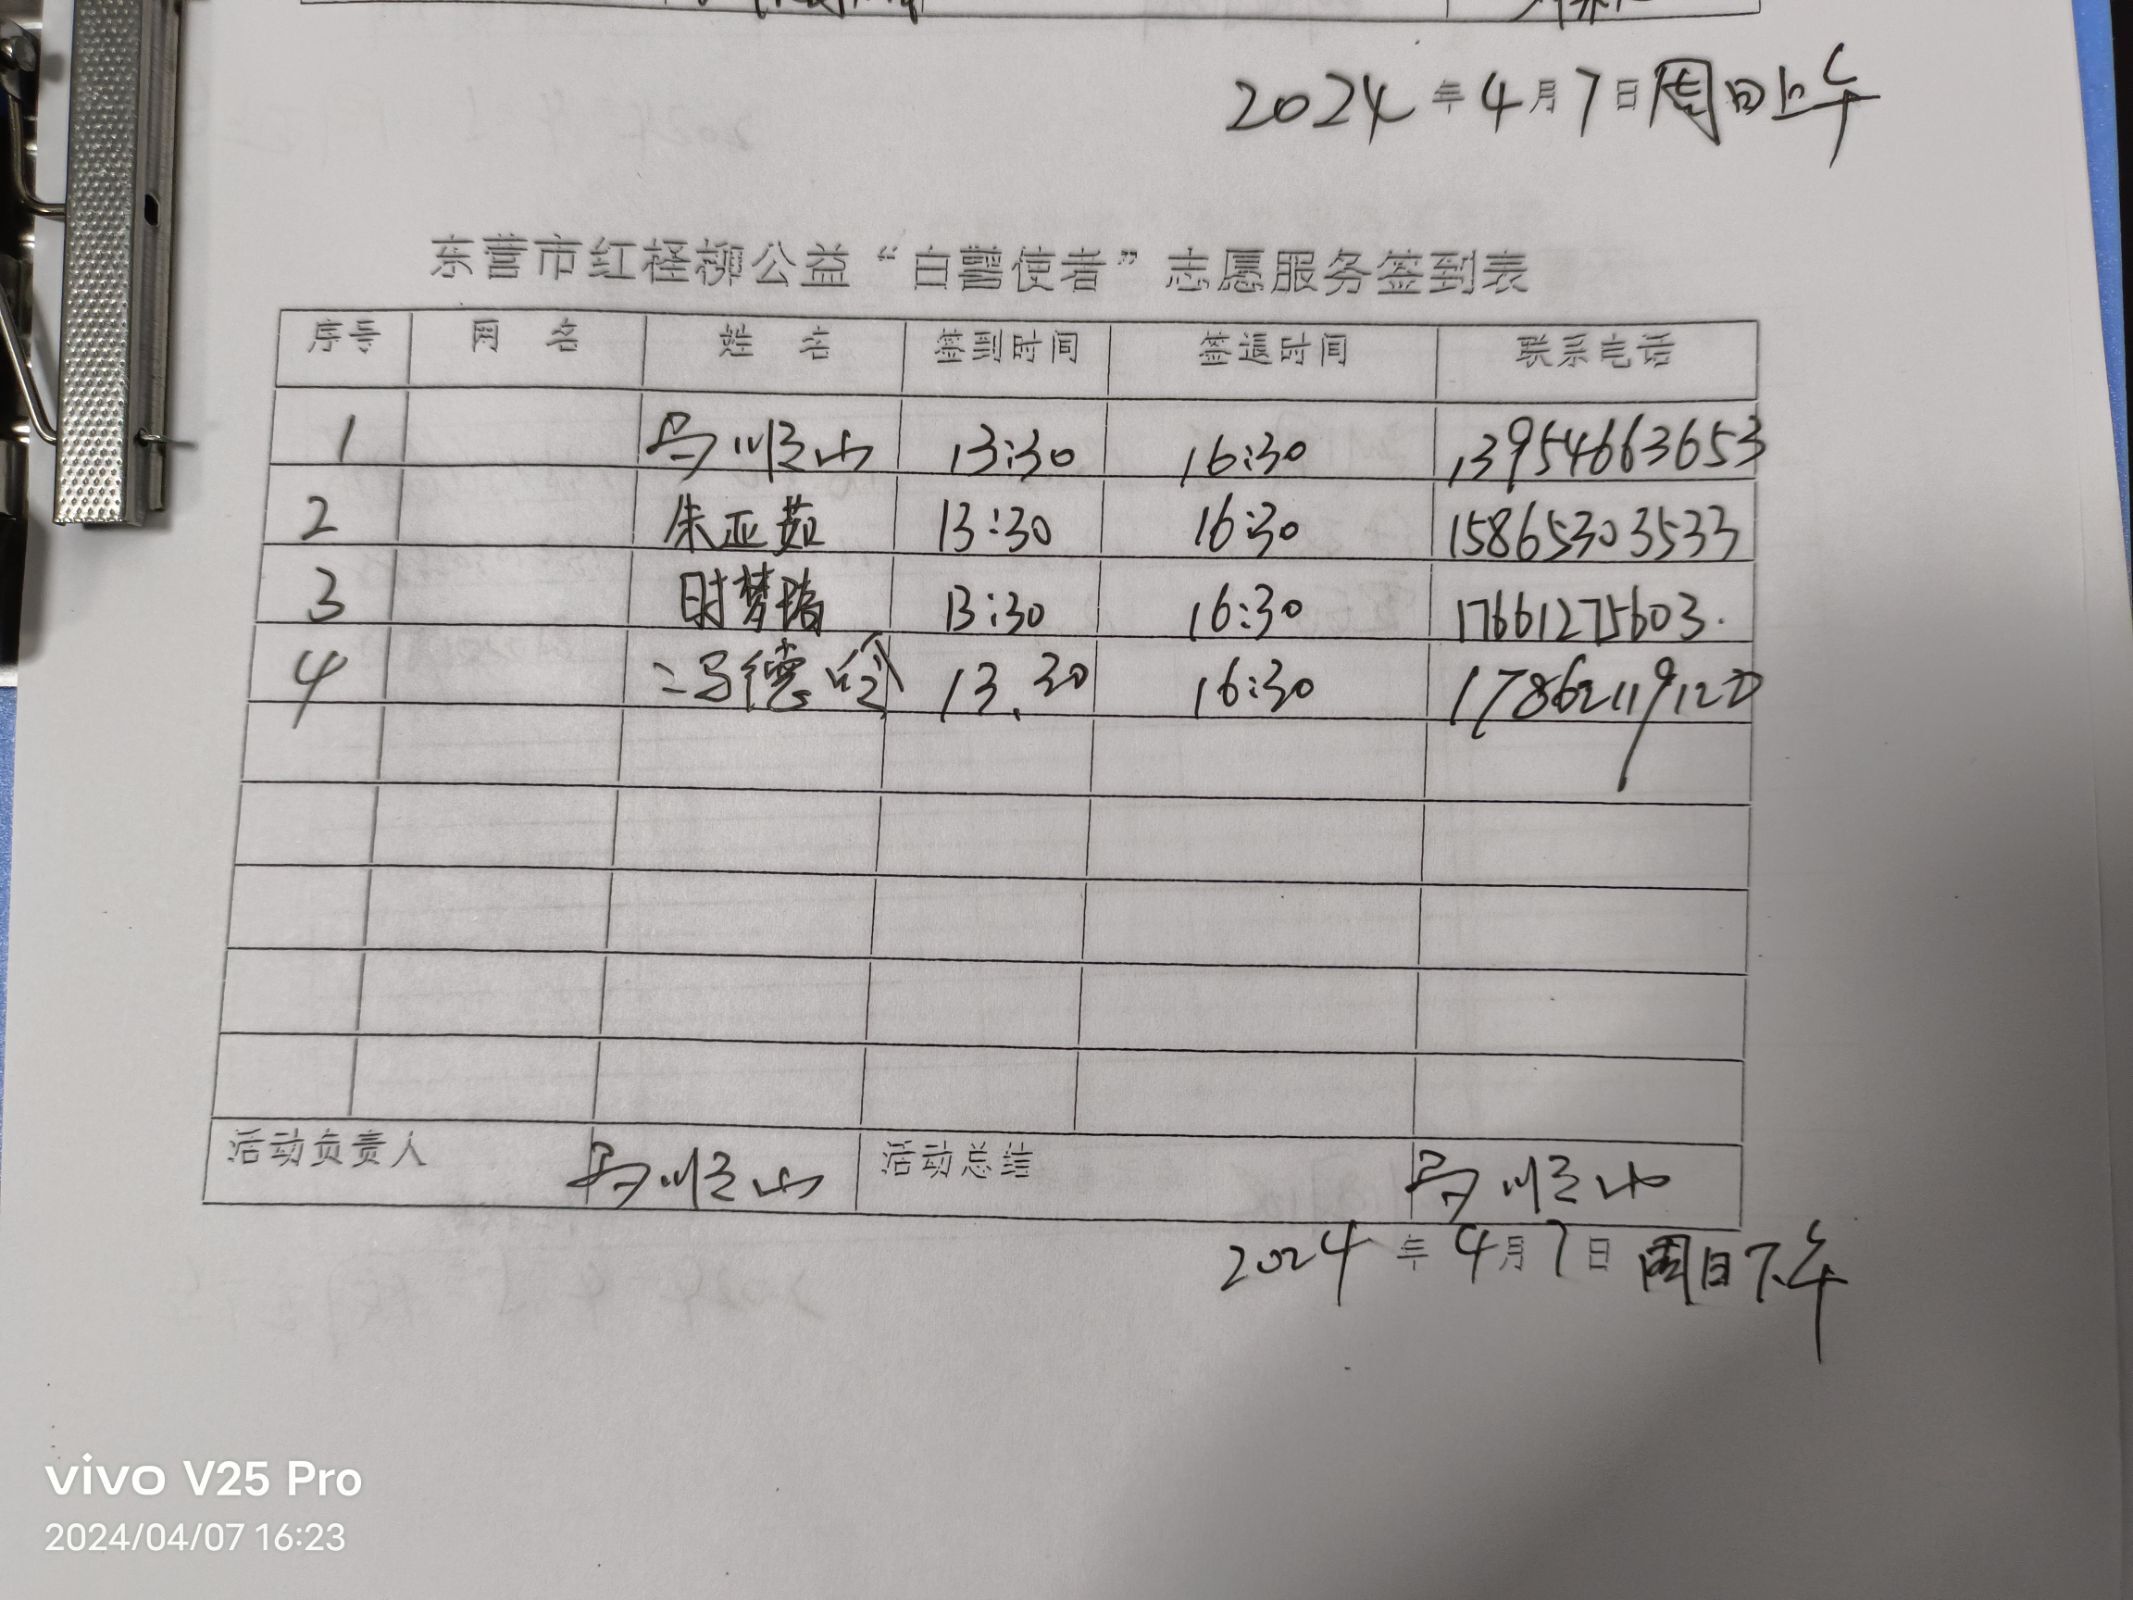 2024年4月7日周日上午
东营市红柽柳公益“白鹭使者”志愿服务签到表
序号 网名 姓名 签到时间 签退时间 联系电话
1 马顺山 13:30 16:30 13954663653
2 朱亚茹 13:30 16:30 15865303533
3 时梦瑞 13:30 16:30 17661275603.
4 冯德 13.30 16:30
活动负责人 马顺山 活动总结 马顺山
2024年4月7日 周日下午
vivo V25 Pro
2024/04/07 16:23